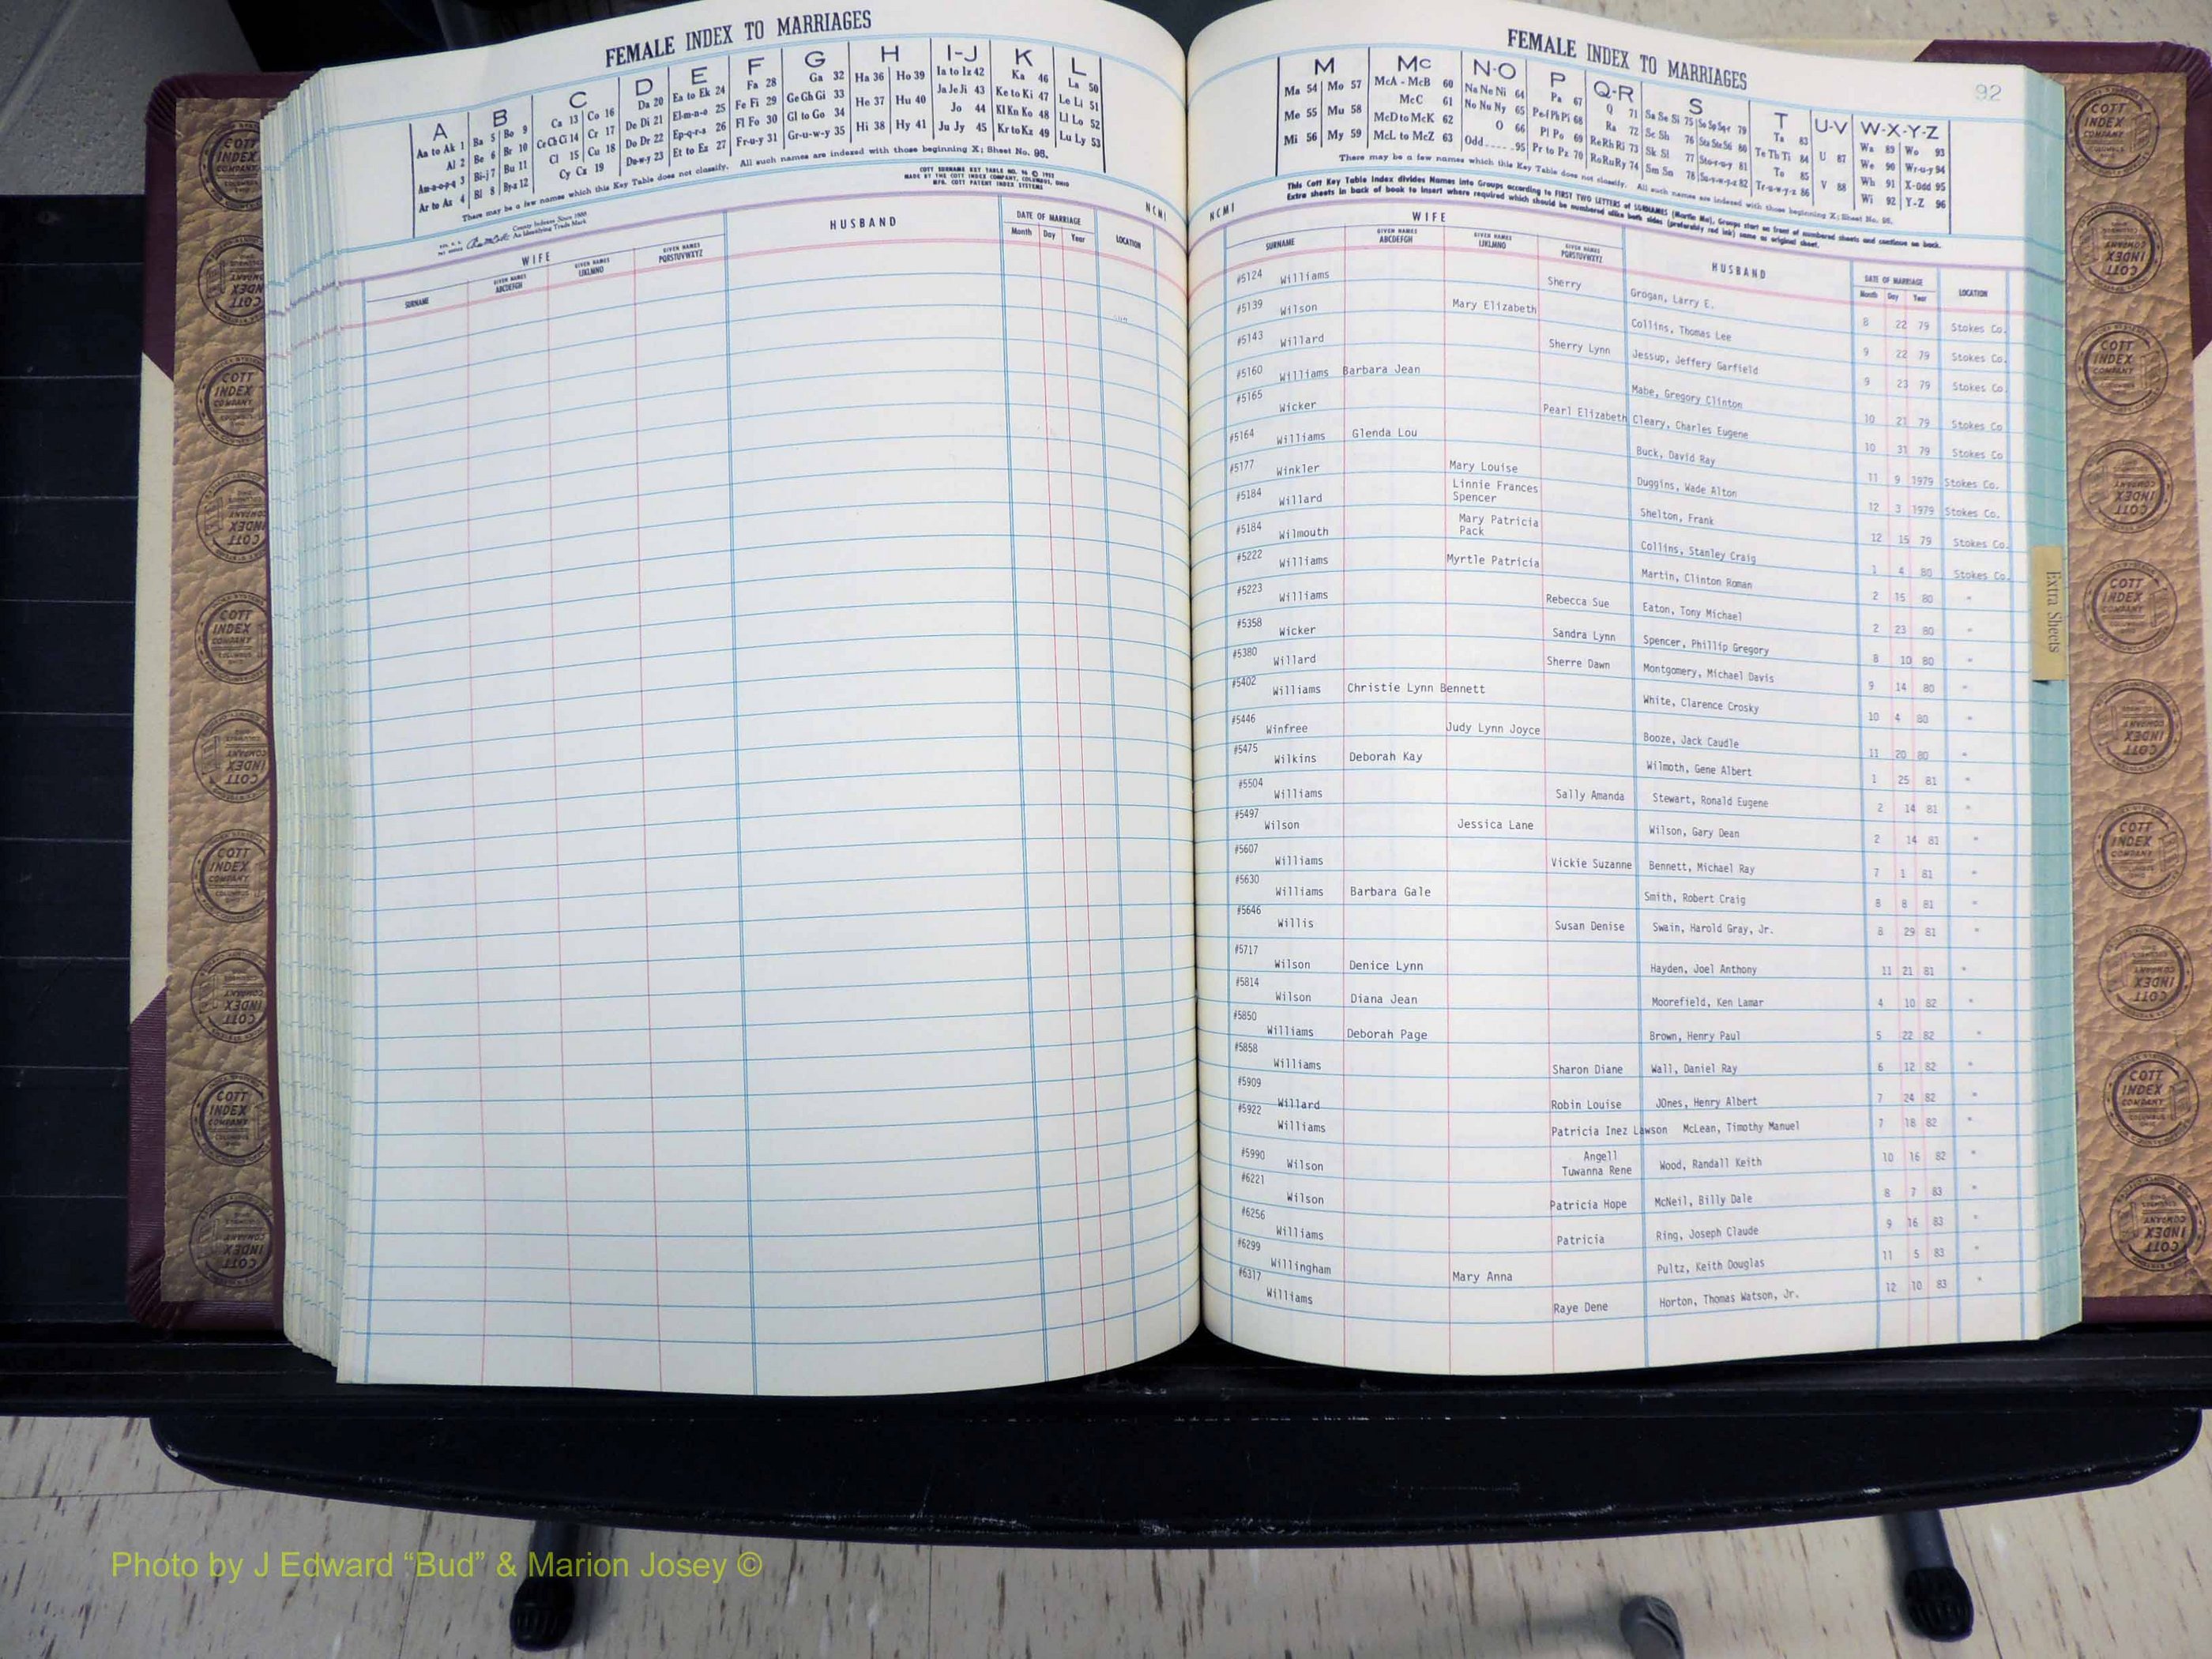 FEMALE INDEX TO MARRIAGES
A B C D E F G H I-J K L
Aa to Ak 1 Ba 5 Bo 9 Ca 13 Co 16 Da 20 Ea to Ek 24 Fa 28 Ga 32 Ha 36 Ho 39 Ia to Iz 42 Ka 46 La 50
Al 2 Be 6 Br 10 Ce Ch Ci 14 Cr 17 De Di 21 El-m-n-o 25 Fe Fi 29 Ge Gh Gi 33 He 37 Hu 40 Ja Je Ji 43 Ke to Ki 47 Le Li 51
Am-n-o-p-q 3 Bi-j 7 Bu 11 Cl 15 Cu 18 Do Dr 22 Ep-q-r-s 26 Fl Fo 30 Gl to Go 34 Hi 38 Hy 41 Jo 44 Kl Kn Ko 48 Ll Lo 52
Ar to Az 4 Bl 8 By-z 12 Cy Cz 19 Du-w-y 23 Et to Ez 27 Fr-u-y 31 Gr-u-w-y 35 Ju Jy 45 Kr to Kz 49 Lu Ly 53
There may be a few names which this Key Table does not classify. All such names are indexed with those beginning X; Sheet No. 95.
County Indexes Since 1888
An Identifying Trade Mark
MADE BY THE COTT INDEX COMPANY, COLUMBUS, OHIO
MFG. COTT PATENT INDEX SYSTEMS
NCMI
WIFE HUSBAND DATE OF MARRIAGE LOCATION
SURNAME GIVEN NAMES ABCDEFGH GIVEN NAMES IJKLMNO GIVEN NAMES PQRSTUVWXYZ Month Day Year
FEMALE INDEX TO MARRIAGES
92
M Mc N-O P Q-R S T U-V W-X-Y-Z
Ma 54 Mo 57 McA - McB 60 Na Ne Ni 64 Pa 67 Q 71 Sa Se Si 75 Ta 83 Wa 89 Wo 93
Me 55 Mu 58 McC 61 No Nu Ny 65 Pe-f Ph Pi 68 Ra 72 Sc Sh 76 Te Th Ti 84 U 87 We 90 Wr-u-y 94
Mi 56 My 59 McD to McK 62 O 66 Pl Po 69 Re Rh Ri 73 Sk Sl 77 To 85 V 88 Wh 91 X-Odd 95
McL to McZ 63 Odd 95 Pr to Pz 70 Ro Ru Ry 74 Sm Sn 78 Su-v-w-y-z 82 Tr-u-w-y-z 86 Wi 92 Y-Z 96
There may be a few names which this Key Table does not classify. All such names are indexed with those beginning X; Sheet No. 95.
This Cott Key Table Index divides Names into Groups according to FIRST TWO LETTERS of SURNAMES (Martin Ma), Groups start on front of numbered sheets and continue on back.
Extra sheets in back of book to insert where required which should be numbered alike both sides (preferably red ink) same as original sheet.
NCMI
WIFE HUSBAND DATE OF MARRIAGE LOCATION
SURNAME GIVEN NAMES ABCDEFGH GIVEN NAMES IJKLMNO GIVEN NAMES PQRSTUVWXYZ Month Day Year
#5124 Williams Sherry Grogan, Larry E. 8 22 79 Stokes Co.
#5139 Wilson Mary Elizabeth Collins, Thomas Lee 9 22 79 Stokes Co.
#5143 Willard Sherry Lynn Jessup, Jeffery Garfield 9 23 79 Stokes Co.
#5160 Williams Barbara Jean Mabe, Gregory Clinton 10 21 79 Stokes Co
#5165 Wicker Pearl Elizabeth Cleary, Charles Eugene 10 31 79 Stokes Co
#5164 Williams Glenda Lou Buck, David Ray 11 9 1979 Stokes Co.
#5177 Winkler Mary Louise Duggins, Wade Alton 12 3 1979 Stokes Co.
#5184 Willard Linnie Frances Spencer Shelton, Frank 12 15 79 Stokes Co.
#5184 Wilmouth Mary Patricia Pack Collins, Stanley Craig 1 4 80 Stokes Co.
#5222 Williams Myrtle Patricia Martin, Clinton Roman 2 15 80 "
#5223 Williams Rebecca Sue Eaton, Tony Michael 2 23 80 "
#5358 Wicker Sandra Lynn Spencer, Phillip Gregory 8 10 80 "
#5380 Willard Sherre Dawn Montgomery, Michael Davis 9 14 80 "
#5402 Williams Christie Lynn Bennett White, Clarence Crosky 10 4 80 "
#5446 Winfree Judy Lynn Joyce Booze, Jack Caudle 11 20 80 "
#5475 Wilkins Deborah Kay Wilmoth, Gene Albert 1 25 81 "
#5504 Williams Sally Amanda Stewart, Ronald Eugene 2 14 81 "
#5497 Wilson Jessica Lane Wilson, Gary Dean 2 14 81 "
#5607 Williams Vickie Suzanne Bennett, Michael Ray 7 1 81 "
#5630 Williams Barbara Gale Smith, Robert Craig 8 8 81 "
#5646 Willis Susan Denise Swain, Harold Gray, Jr. 8 29 81 "
#5717 Wilson Denice Lynn Hayden, Joel Anthony 11 21 81 "
#5814 Wilson Diana Jean Moorefield, Ken Lamar 4 10 82 "
#5850 Williams Deborah Page Brown, Henry Paul 5 22 82 "
#5858 Williams Sharon Diane Wall, Daniel Ray 6 12 82 "
#5909 Willard Robin Louise JOnes, Henry Albert 7 24 82 "
#5922 Williams Patricia Inez Lawson McLean, Timothy Manuel 7 18 82 "
#5990 Wilson Angell Tuwanna Rene Wood, Randall Keith 10 16 82 "
#6221 Wilson Patricia Hope McNeil, Billy Dale 8 7 83 "
#6256 Williams Patricia Ring, Joseph Claude 9 16 83 "
#6299 Willingham Mary Anna Pultz, Keith Douglas 11 5 83 "
#6317 Williams Raye Dene Horton, Thomas Watson, Jr. 12 10 83 "
Extra Sheets
COTT INDEX COMPANY
Photo by J Edward “Bud” & Marion Josey ©